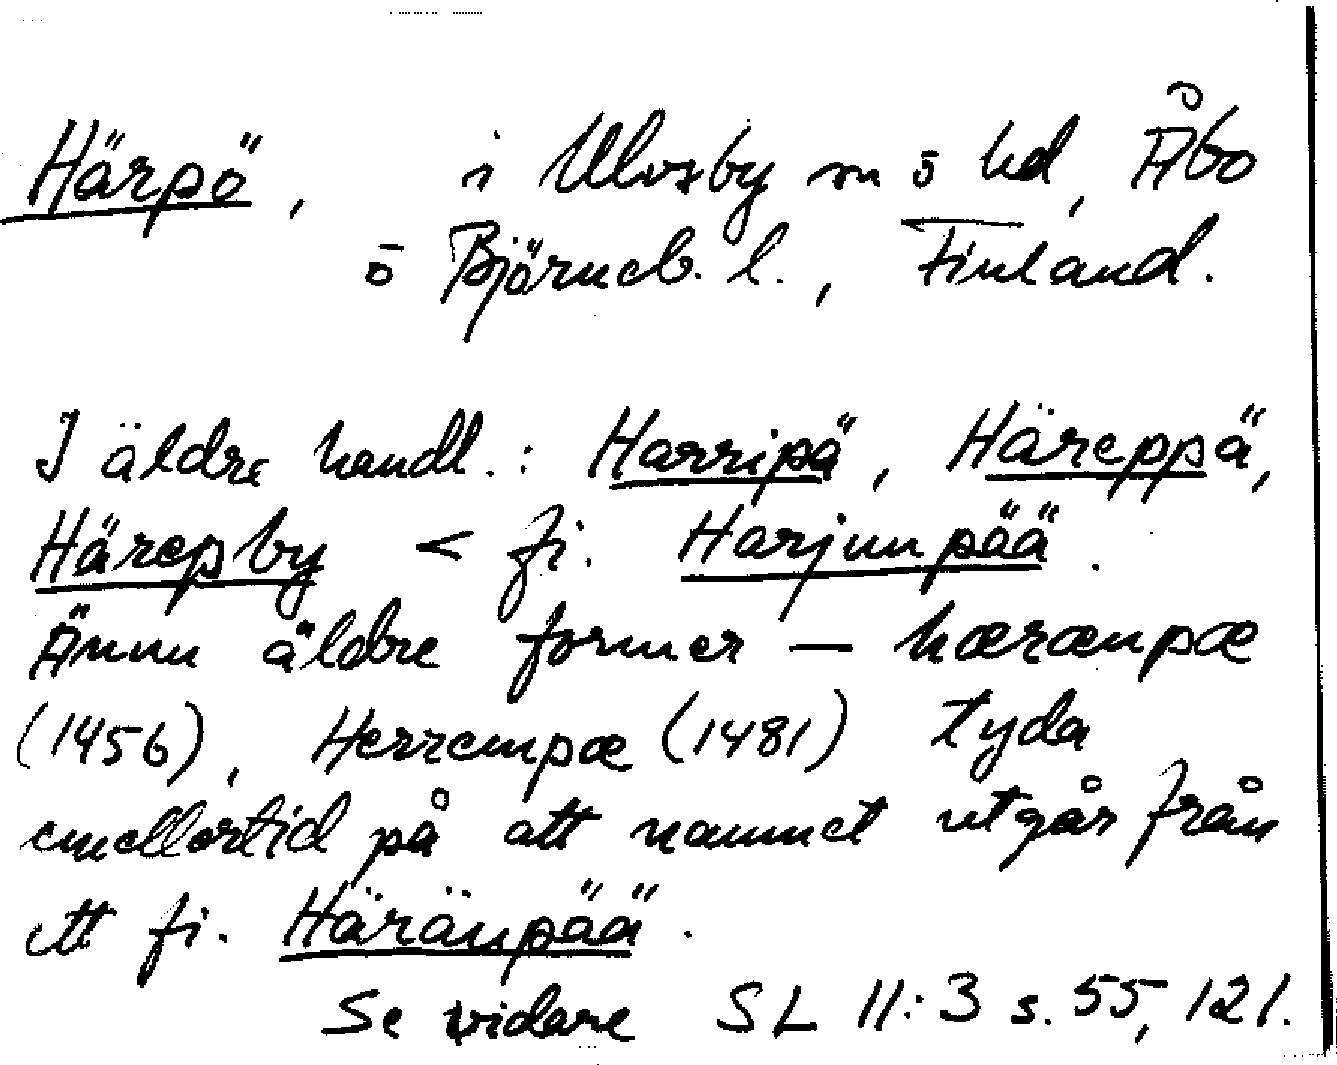 Härpö, i Ulvsby sn o hd, Åbo
o Björneb. l., Finland.
I äldre handl.: Harripä, Häreppä,
Härepby < fi. Harjunpää.
Ännu äldre former — hæræupæ
(1456), Herrempæ (1481) tyda
emellertid på att namnet utgår från
ett fi. Häränpää.
Se vidare SL 11:3 s. 55, 121.